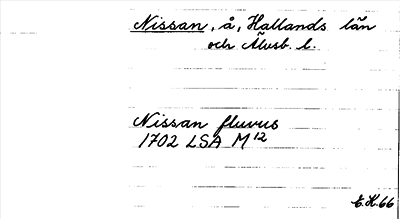 Nissan, å, Hallands län
och Älvsb. l.
Nissan fluvus
1702 LSA M12
E.H.66